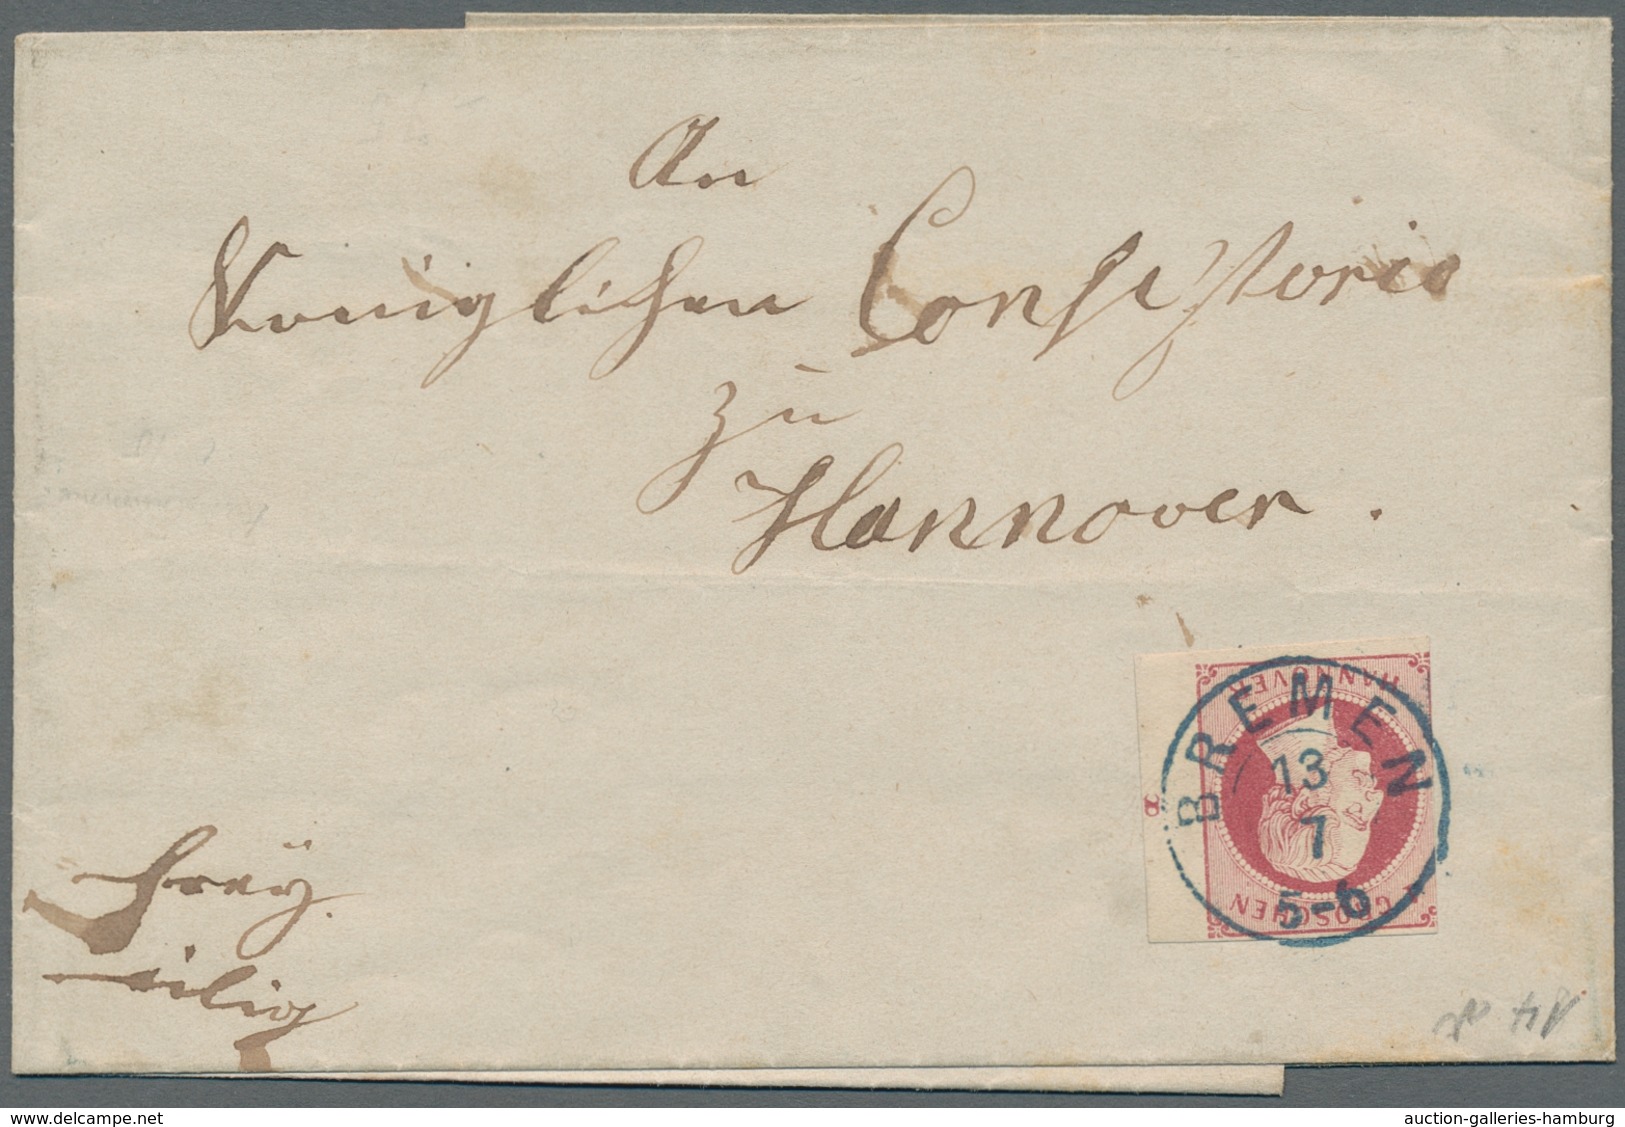 An
Königlichen Consistorio
zu
Hannover.
HANNOVER
BREMEN
13
7
5-6
GROSCHEN
8
frey.
eilig
www.delcampe.net
auction-galleries-hamburg